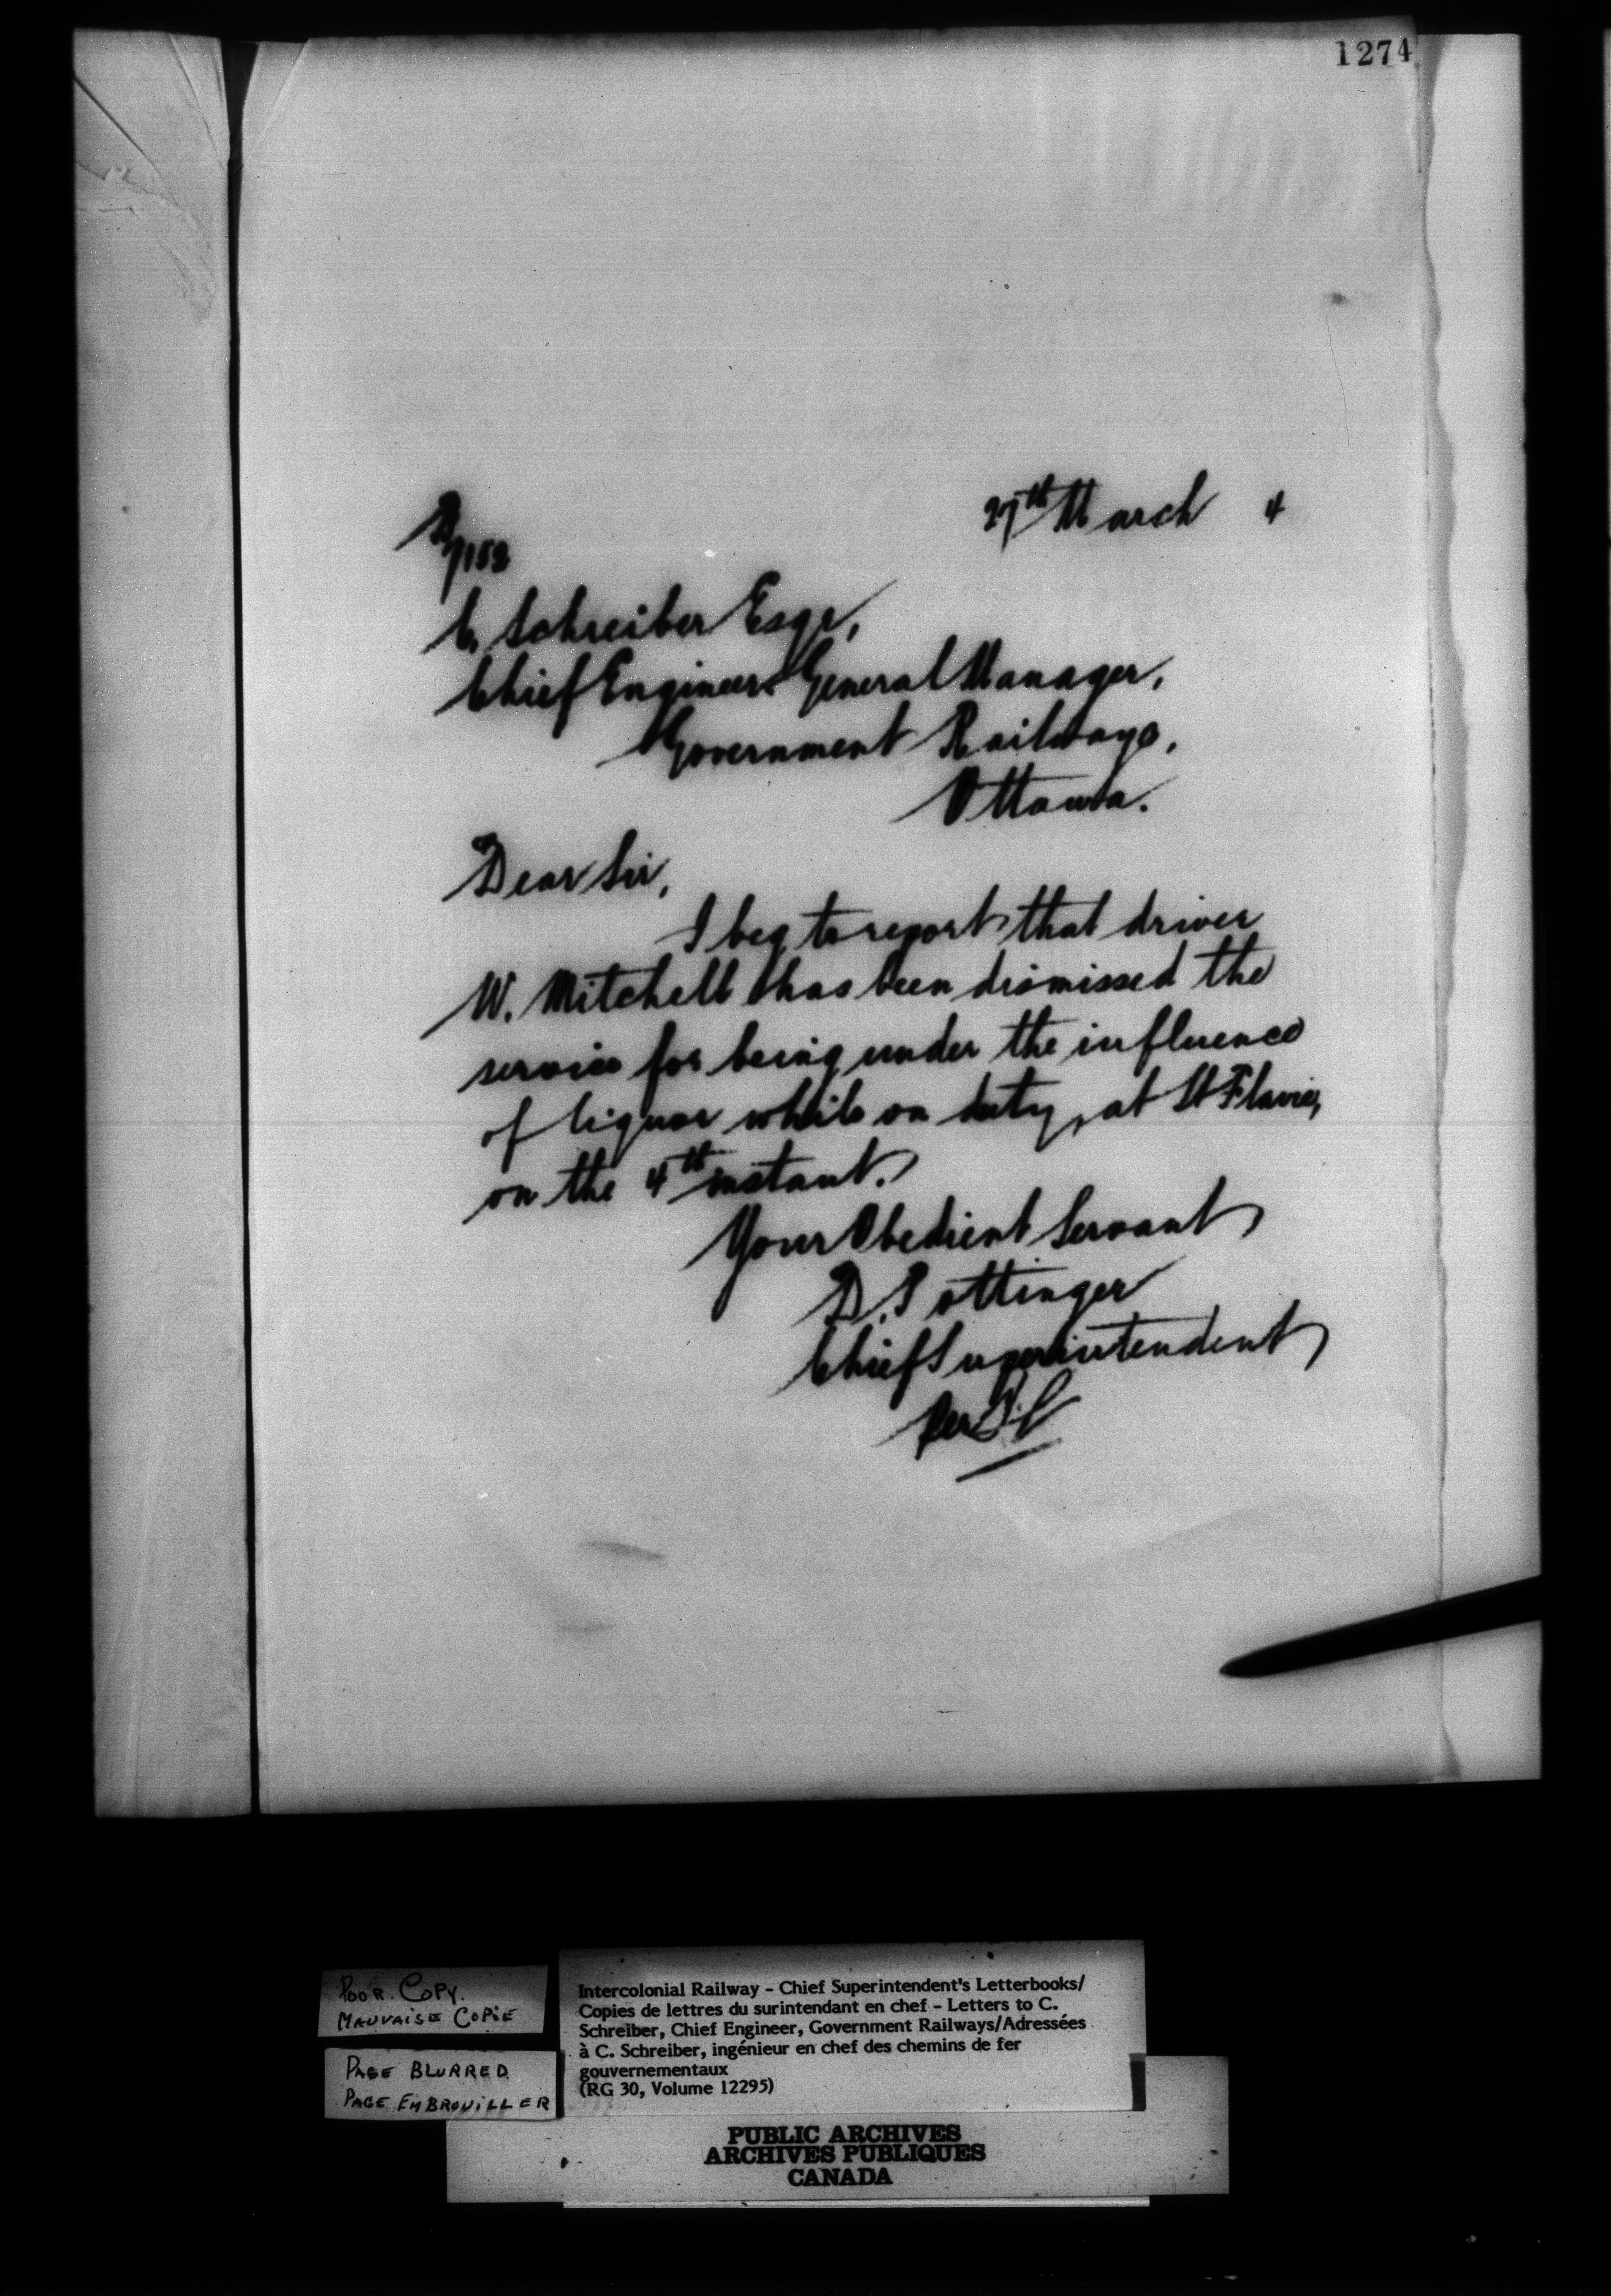 1274
27th March 4
C. Schreiber Esqr,
Chief Engineer & General Manager,
Government Railways,
Ottawa.
Dear Sir,
I beg to report that driver
W. Mitchell has been dismissed the
service for being under the influence
of liquor while on duty, at St Flavie,
on the 4th instant.
Your Obedient Servant
D. Pottinger
Chief Superintendent
Per
POOR COPY.
MAUVAISE COPIE
PAGE BLURRED
PAGE EMBROUILLER
Intercolonial Railway - Chief Superintendent's Letterbooks/
Copies de lettres du surintendant en chef - Letters to C.
Schreiber, Chief Engineer, Government Railways/Adressées
à C. Schreiber, ingénieur en chef des chemins de fer
gouvernementaux
(RG 30, Volume 12295)
PUBLIC ARCHIVES
ARCHIVES PUBLIQUES
CANADA